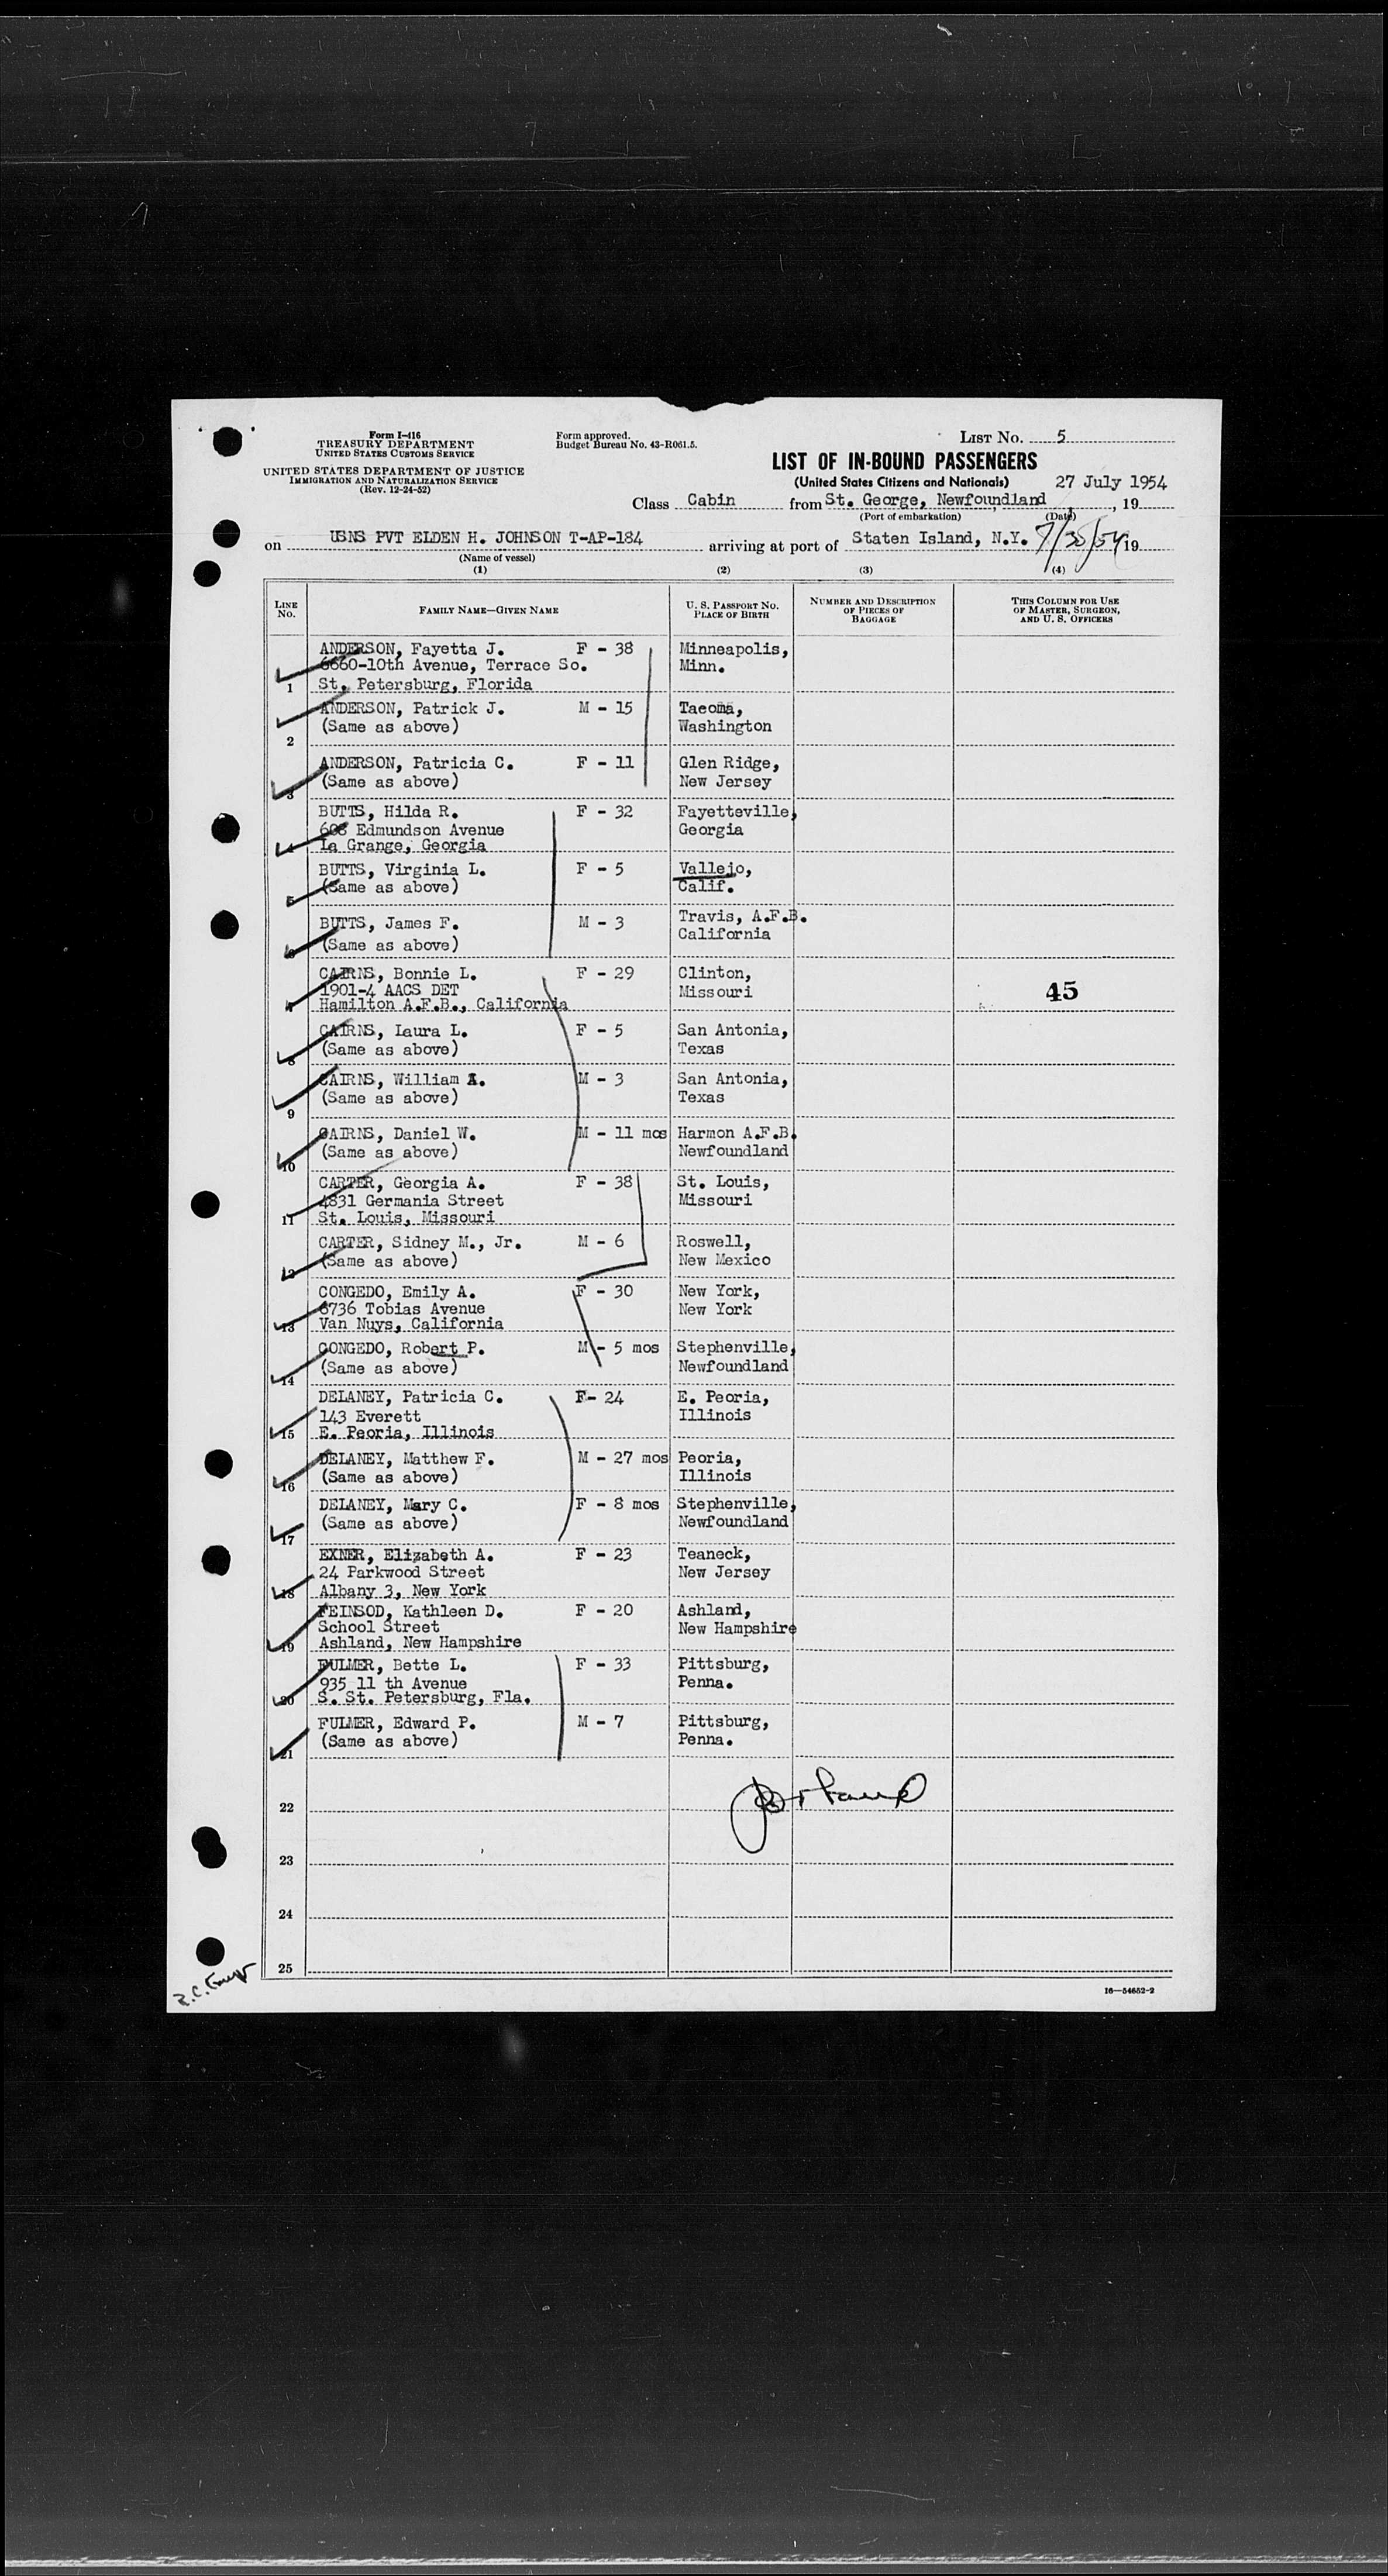 Form I-416
TREASURY DEPARTMENT
UNITED STATES CUSTOMS SERVICE
UNITED STATES DEPARTMENT OF JUSTICE
IMMIGRATION AND NATURALIZATION SERVICE
(Rev. 12-24-52)
Form approved.
Budget Bureau No. 43-R061.5.
LIST No. 5
LIST OF IN-BOUND PASSENGERS
(United States Citizens and Nationals)
27 July 1954
Class Cabin from St. George, Newfoundland, 19
(Port of embarkation) (Date)
on USNS PVT ELDEN H. JOHNSON T-AP-184 arriving at port of Staten Island, N.Y. 7/30/54 19
(Name of vessel)
(1) (2) (3) (4)
LINE No. FAMILY NAME—GIVEN NAME U. S. PASSPORT No. PLACE OF BIRTH NUMBER AND DESCRIPTION OF PIECES OF BAGGAGE THIS COLUMN FOR USE OF MASTER, SURGEON, AND U. S. OFFICERS
ANDERSON, Fayetta J. F - 38 Minneapolis,
6660-10th Avenue, Terrace So. Minn.
1 St. Petersburg, Florida
ANDERSON, Patrick J. M - 15 Tacoma,
(Same as above) Washington
2
ANDERSON, Patricia C. F - 11 Glen Ridge,
(Same as above) New Jersey
3
BUTTS, Hilda R. F - 32 Fayetteville,
608 Edmundson Avenue Georgia
4 La Grange, Georgia
BUTTS, Virginia L. F - 5 Vallejo,
(Same as above) Calif.
5
BUTTS, James F. M - 3 Travis, A.F.B.
(Same as above) California
6
CAIRNS, Bonnie L. F - 29 Clinton,
1901-4 AACS DET Missouri 45
7 Hamilton A.F.B., California
CAIRNS, Laura L. F - 5 San Antonia,
8 (Same as above) Texas
CAIRNS, William A. M - 3 San Antonia,
(Same as above) Texas
9
CAIRNS, Daniel W. M - 11 mos Harmon A.F.B.
(Same as above) Newfoundland
10
CARTER, Georgia A. F - 38 St. Louis,
4831 Germania Street Missouri
11 St. Louis, Missouri
CARTER, Sidney M., Jr. M - 6 Roswell,
(Same as above) New Mexico
12
CONGEDO, Emily A. F - 30 New York,
6736 Tobias Avenue New York
13 Van Nuys, California
CONGEDO, Robert P. M - 5 mos Stephenville,
(Same as above) Newfoundland
14
DELANEY, Patricia C. F- 24 E. Peoria,
143 Everett Illinois
15 E. Peoria, Illinois
DELANEY, Matthew F. M - 27 mos Peoria,
(Same as above) Illinois
16
DELANEY, Mary C. F - 8 mos Stephenville,
(Same as above) Newfoundland
17
EXNER, Elizabeth A. F - 23 Teaneck,
24 Parkwood Street New Jersey
18 Albany 3, New York
FEINSOD, Kathleen D. F - 20 Ashland,
School Street New Hampshire
19 Ashland, New Hampshire
FULMER, Bette L. F - 33 Pittsburg,
935 11 th Avenue Penna.
20 S. St. Petersburg, Fla.
FULMER, Edward P. M - 7 Pittsburg,
(Same as above) Penna.
21
22
23
24
25
16—54652-2